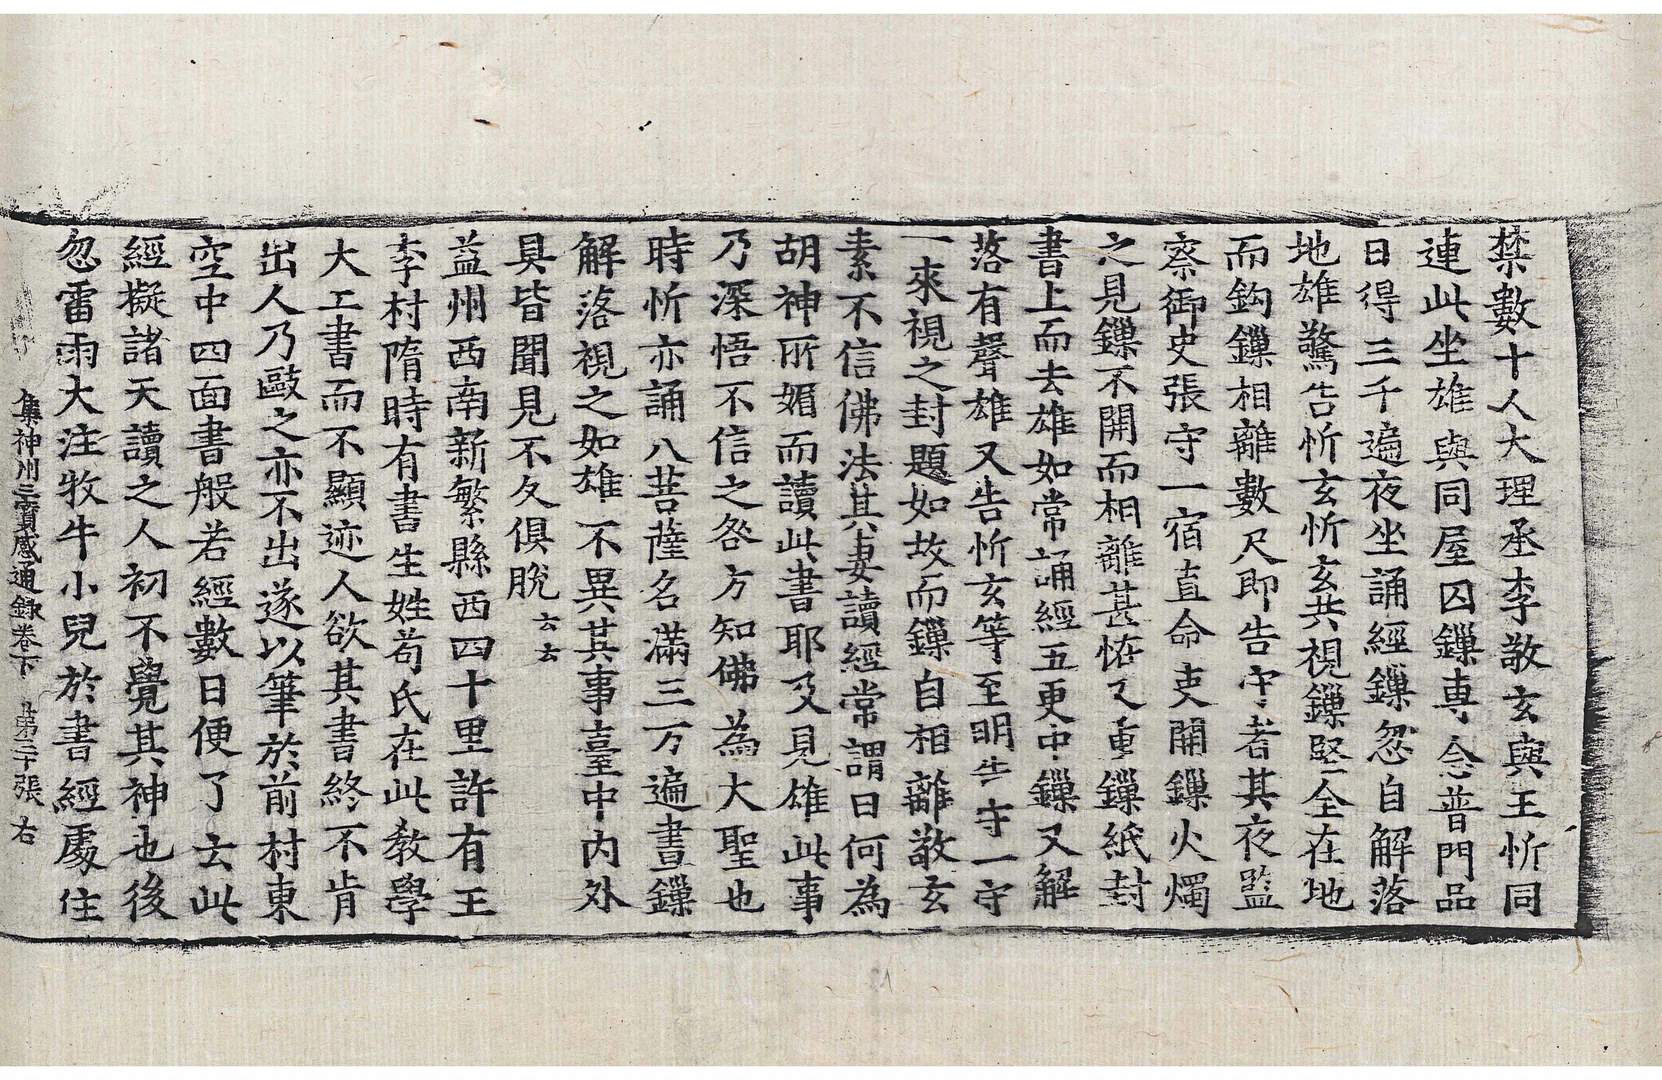 禁數十人大理丞李敬玄與王忻同
連此坐雄與同屋囚鏁專念普門品
日得三千遍夜坐誦經鏁忽自解落
地雄驚告忻玄忻玄共視鏁堅全在地
而鈎鏁相離數尺即告守者其夜監
察御史張守一宿直命吏開鏁火燭
之見鏁不開而相離甚恠又重鏁紙封
書上而去雄如常誦經五更中鏁又解
落有聲雄又告忻玄等至明告守一守
一來視之封題如故而鏁自相離敬玄
素不信佛法其妻讀經常謂曰何為
胡神所媚而讀此書耶及見雄此事
乃深悟不信之咎方知佛為大聖也
時忻亦誦八菩薩名滿三万遍晝鏁
解落視之如雄不異其事臺中內外
具皆聞見不久俱脫 云云
益州西南新繁縣西四十里許有王
李村隋時有書生姓苟氏在此教學
大工書而不顯迹人欲其書終不肯
出人乃毆之亦不出遂以筆於前村東
空中四面書般若經數日便了云此
經擬諸天讀之人初不覺其神也後
忽雷雨大注牧牛小兒於書經處住
集神州三寶感通錄卷下 第二十張 右